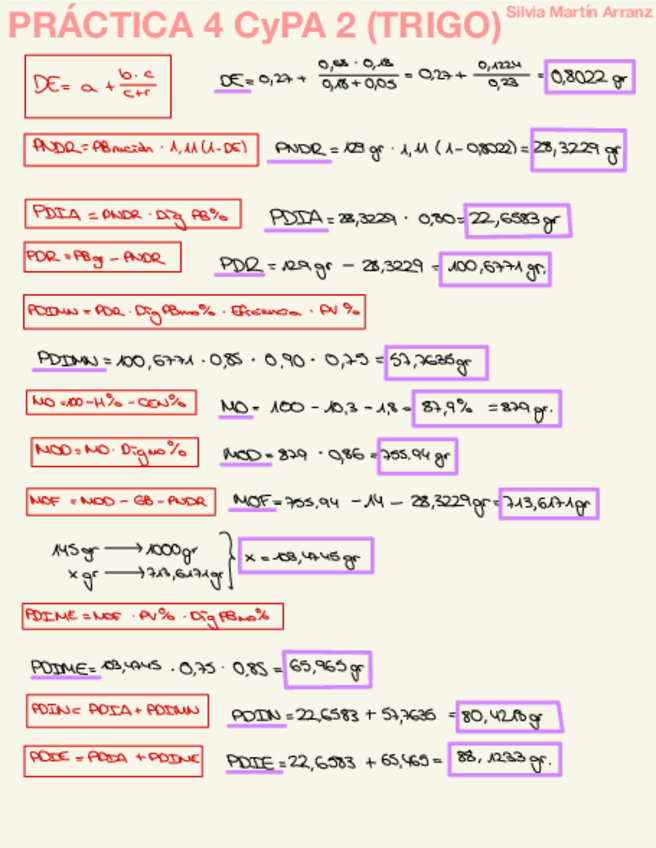 PRÁCTICA 4 CyPA 2 (TRIGO) Silvia Martín Arranz
DE = a + b·c / c+r DE = 0,27 + 0,68 · 0,18 / 0,18 + 0,05 = 0,27 + 0,1224 / 0,23 = 0,8022 gr
PNDR = PB ración · 1,11 (1-DE) PNDR = 129 gr · 1,11 (1 - 0,8022) = 28,3229 gr
PDIA = PNDR · Dig PB% PDIA = 28,3229 · 0,80 = 22,6583 gr
PDR = PBgr - PNDR PDR = 129 gr - 28,3229 = 100,6771 gr.
PDIMN = PDR · Dig PBmo% · Eficiencia · PV%
PDIMN = 100,6771 · 0,85 · 0,90 · 0,75 = 57,7635 gr
MO = 100 - H% - CEN% MO = 100 - 10,3 - 1,8 = 87,9% = 879 gr.
MOD = MO · Dig mo% MOD = 879 · 0,86 = 755,94 gr
MOF = MOD - GB - PNDR MOF = 755,94 - 14 - 28,3229 gr = 713,6171 gr
145 gr → 1000 gr
x gr → 713,6171 gr } x = 103,4745 gr
PDIME = MOF · PV% · Dig PBmo%
PDIME = 103,4745 · 0,75 · 0,85 = 65,965 gr
PDIN = PDIA + PDIMN PDIN = 22,6583 + 57,7635 = 80,4218 gr
PDIE = PDIA + PDIME PDIE = 22,6583 + 65,465 = 88,1233 gr.